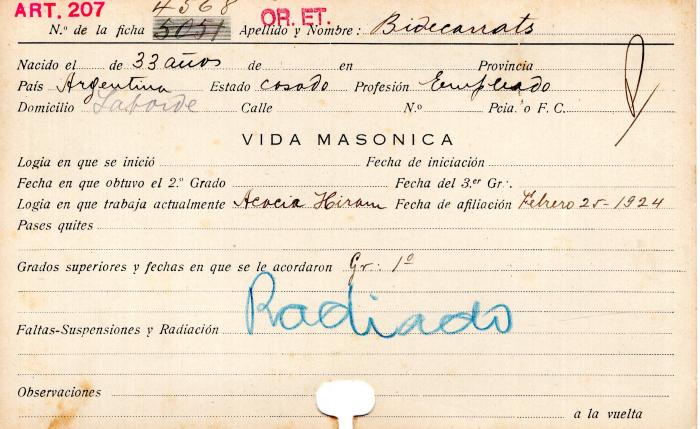 ART. 207 4568 OR. ET.
N.º de la ficha 5051 Apellido y Nombre: Bidecarrats
Nacido el de 33 años de en Provincia
País Argentina Estado casado Profesión Empleado
Domicilio Laborde Calle N.º Pcia. o F. C.
VIDA MASONICA
Logia en que se inició Fecha de iniciación
Fecha en que obtuvo el 2.º Grado Fecha del 3.er Gr∴
Logia en que trabaja actualmente Acacia Hiram Fecha de afiliación Febrero 25-1924
Pases quites
Grados superiores y fechas en que se le acordaron Gr∴ 1º
Radiado
Faltas-Suspensiones y Radiación
Observaciones
a la vuelta